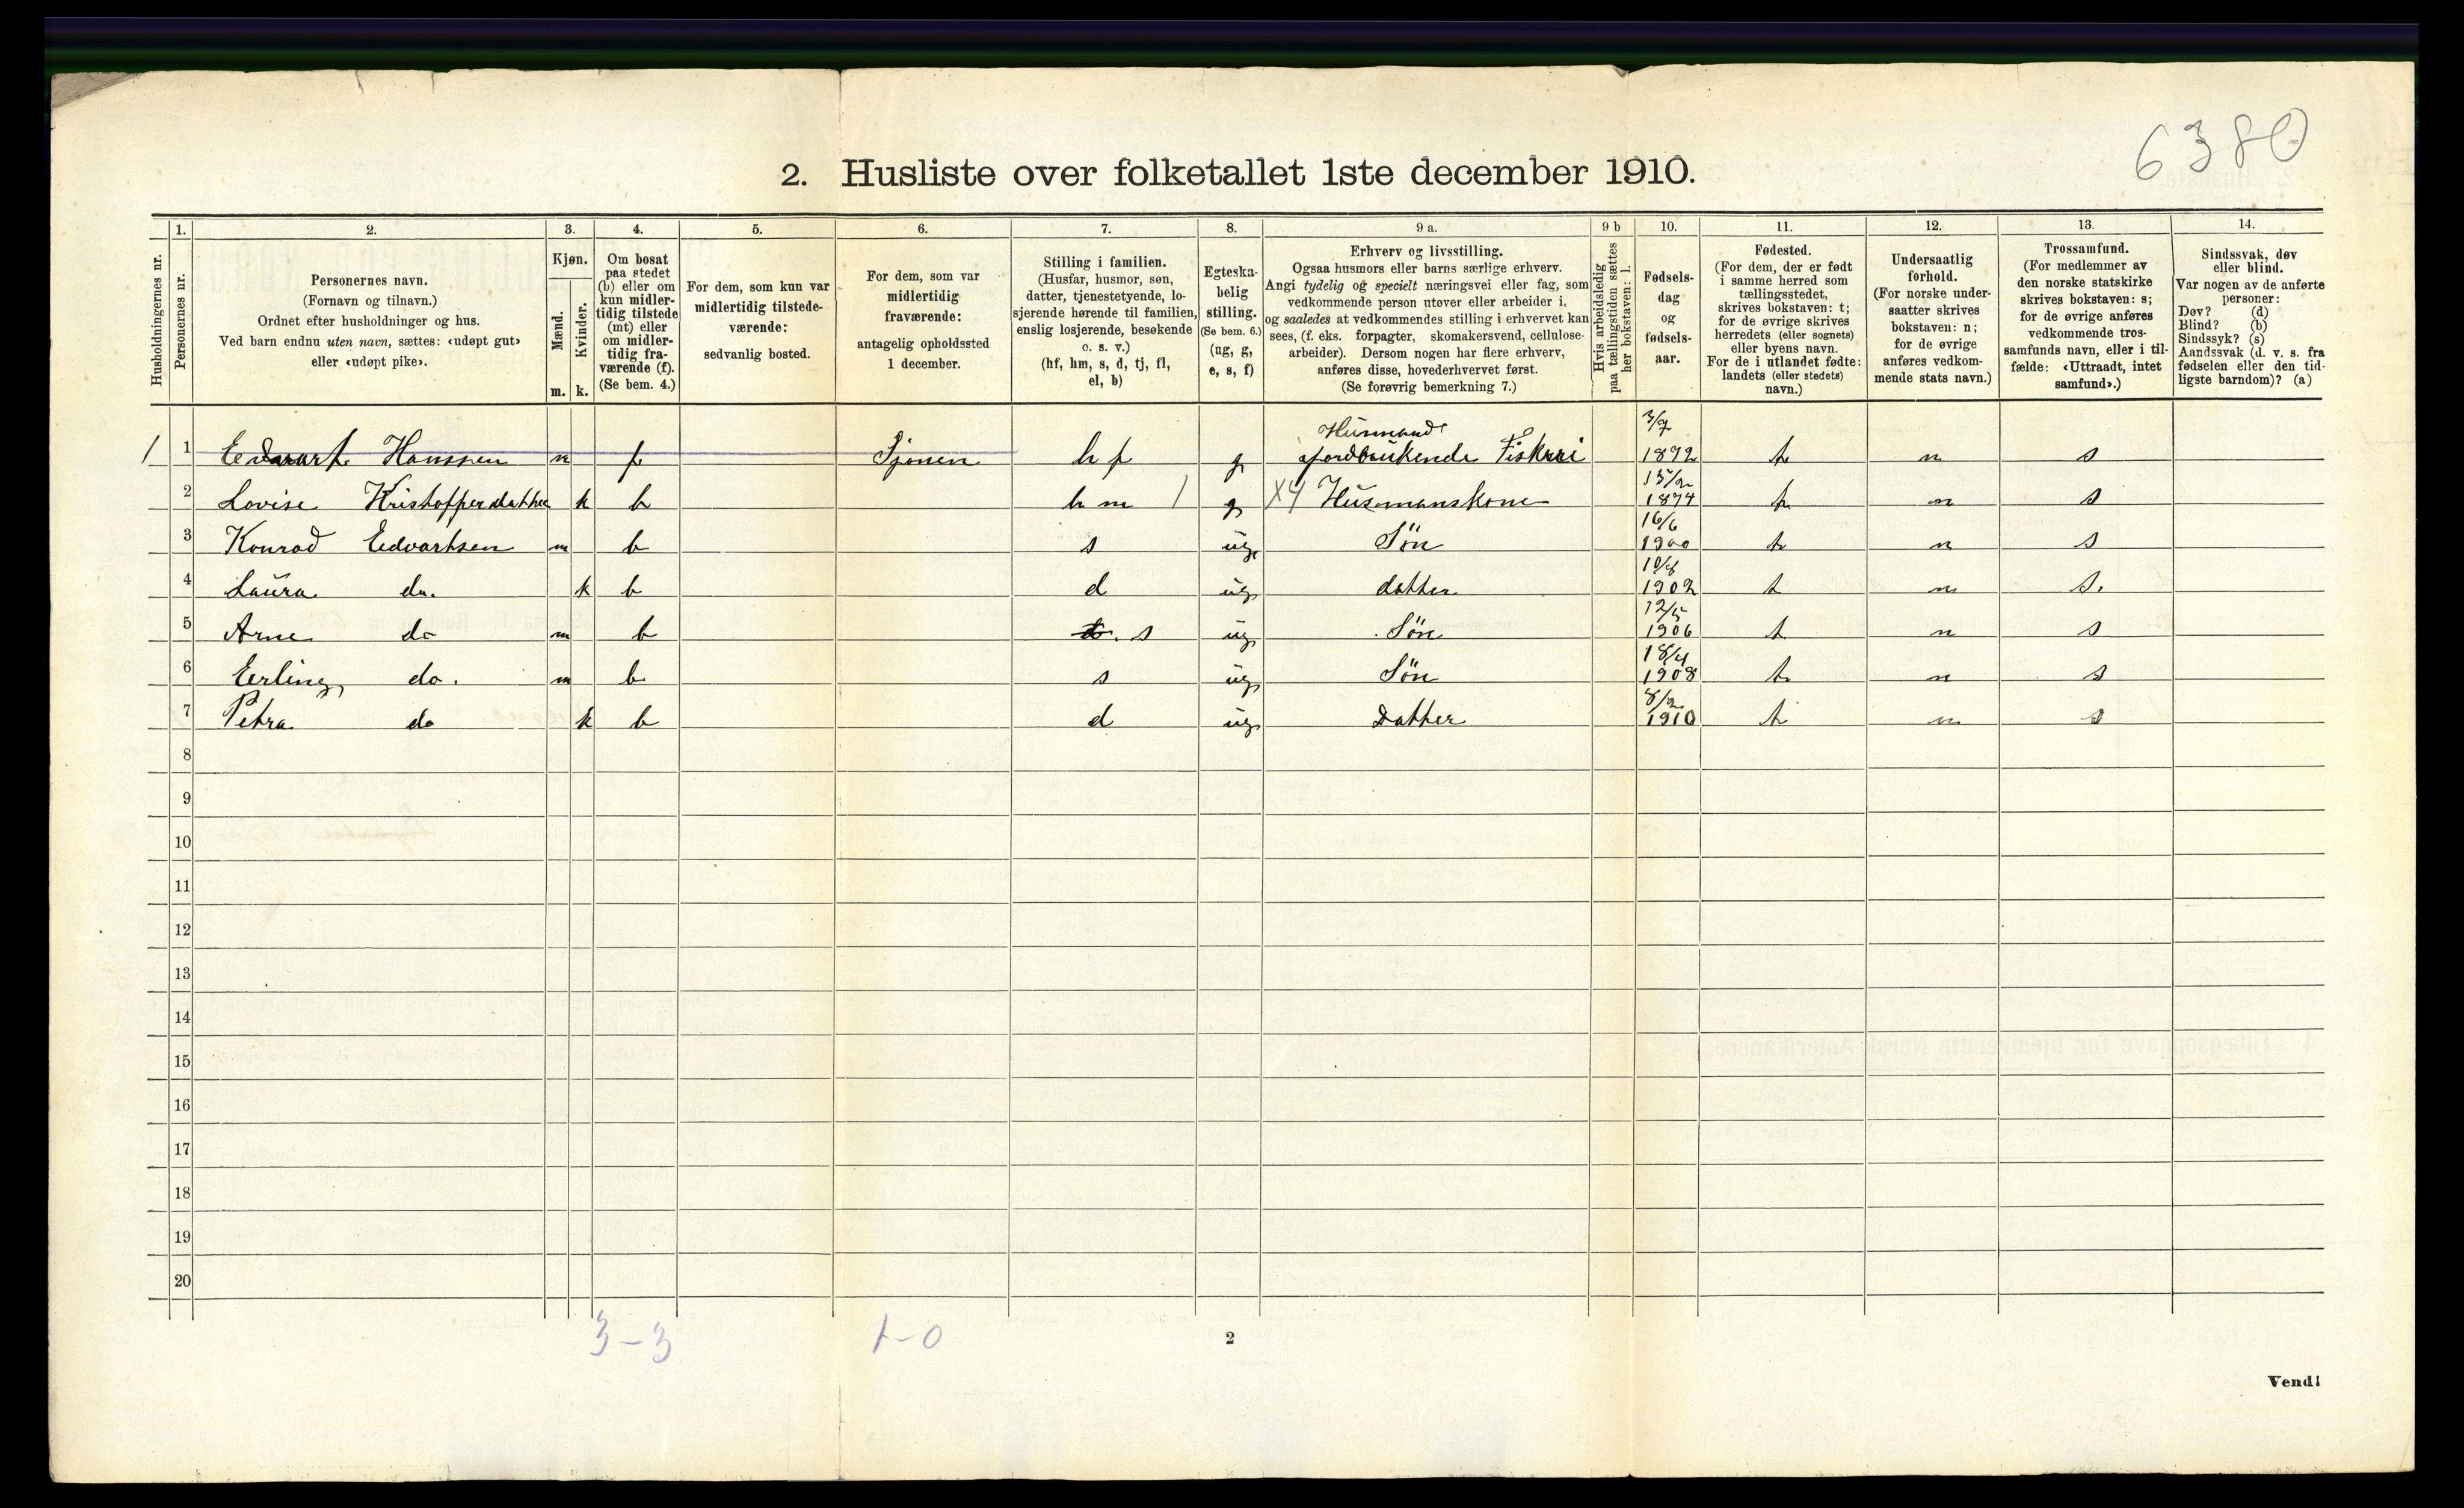 6380
2. Husliste over folketallet 1ste december 1910.
Husholdningernes nr.
1.
Personernes nr.
2.
Personernes navn.
(Fornavn og tilnavn.)
Ordnet efter husholdninger og hus.
Ved barn endnu uten navn, sættes: «udøpt gut»
eller «udøpt pike».
3.
Kjøn.
Mænd.
Kvinder.
m. k.
4.
Om bosat
paa stedet
(b) eller om
kun midler-
tidig tilstede
(mt) eller
om midler-
tidig fra-
værende (f).
(Se bem. 4.)
5.
For dem, som kun var
midlertidig tilstede-
værende:
sedvanlig bosted.
6.
For dem, som var
midlertidig
fraværende:
antagelig opholdssted
1 december.
7.
Stilling i familien.
(Husfar, husmor, søn,
datter, tjenestetyende, lo-
sjerende hørende til familien,
enslig losjerende, besøkende
o. s. v.)
(hf, hm, s, d, tj, fl,
el, b)
8.
Egteska-
belig
stilling.
(Se bem. 6.)
(ug, g,
e, s, f)
9 a.
Erhverv og livsstilling.
Ogsaa husmors eller barns særlige erhverv.
Angi tydelig og specielt næringsvei eller fag, som
vedkommende person utøver eller arbeider i,
og saaledes at vedkommendes stilling i erhvervet kan
sees, (f. eks. forpagter, skomakersvend, cellulose-
arbeider). Dersom nogen har flere erhverv,
anføres disse, hovederhvervet først.
(Se forøvrig bemerkning 7.)
9 b
Hvis arbeidsledig
paa tællingstiden sættes
her bokstaven: l.
10.
Fødsels-
dag
og
fødsels-
aar.
11.
Fødested.
(For dem, der er født
i samme herred som
tællingsstedet,
skrives bokstaven: t;
for de øvrige skrives
herredets (eller sognets)
eller byens navn.
For de i utlandet fødte:
landets (eller stedets)
navn.)
12.
Undersaatlig
forhold.
(For norske under-
saatter skrives
bokstaven: n;
for de øvrige
anføres vedkom-
mende stats navn.)
13.
Trossamfund.
(For medlemmer av
den norske statskirke
skrives bokstaven: s;
for de øvrige anføres
vedkommende tros-
samfunds navn, eller i til-
fælde: «Uttraadt, intet
samfund».)
14.
Sindssvak, døv
eller blind.
Var nogen av de anførte
personer:
Døv? (d)
Blind? (b)
Sindssyk? (s)
Aandssvak (d. v. s. fra
fødselen eller den tid-
ligste barndom)? (a)
Husmand 3/7
1 1 Edvart Hanssen m f Sjonen hf g jordbrukende Fiskeri 1872 t n s
15/2
2 Lovise Kristofferdatter k b hm 1 g X4 Husmanskone 1874 t n s
16/6
3 Konrad Edvartsen m b s ug Søn 1900 t n s
10/8
4 Laura do. k b d ug datter 1902 t n s.
12/5
5 Arne do m b s ug Søn 1906 t n s
18/4
6 Erling do. m b s ug Søn 1908 t n s
8/2
7 Petra do k b d ug Datter 1910 t n s
8
9
10
11
12
13
14
15
16
17
18
19
20
3-3 1-0
2
Vend!